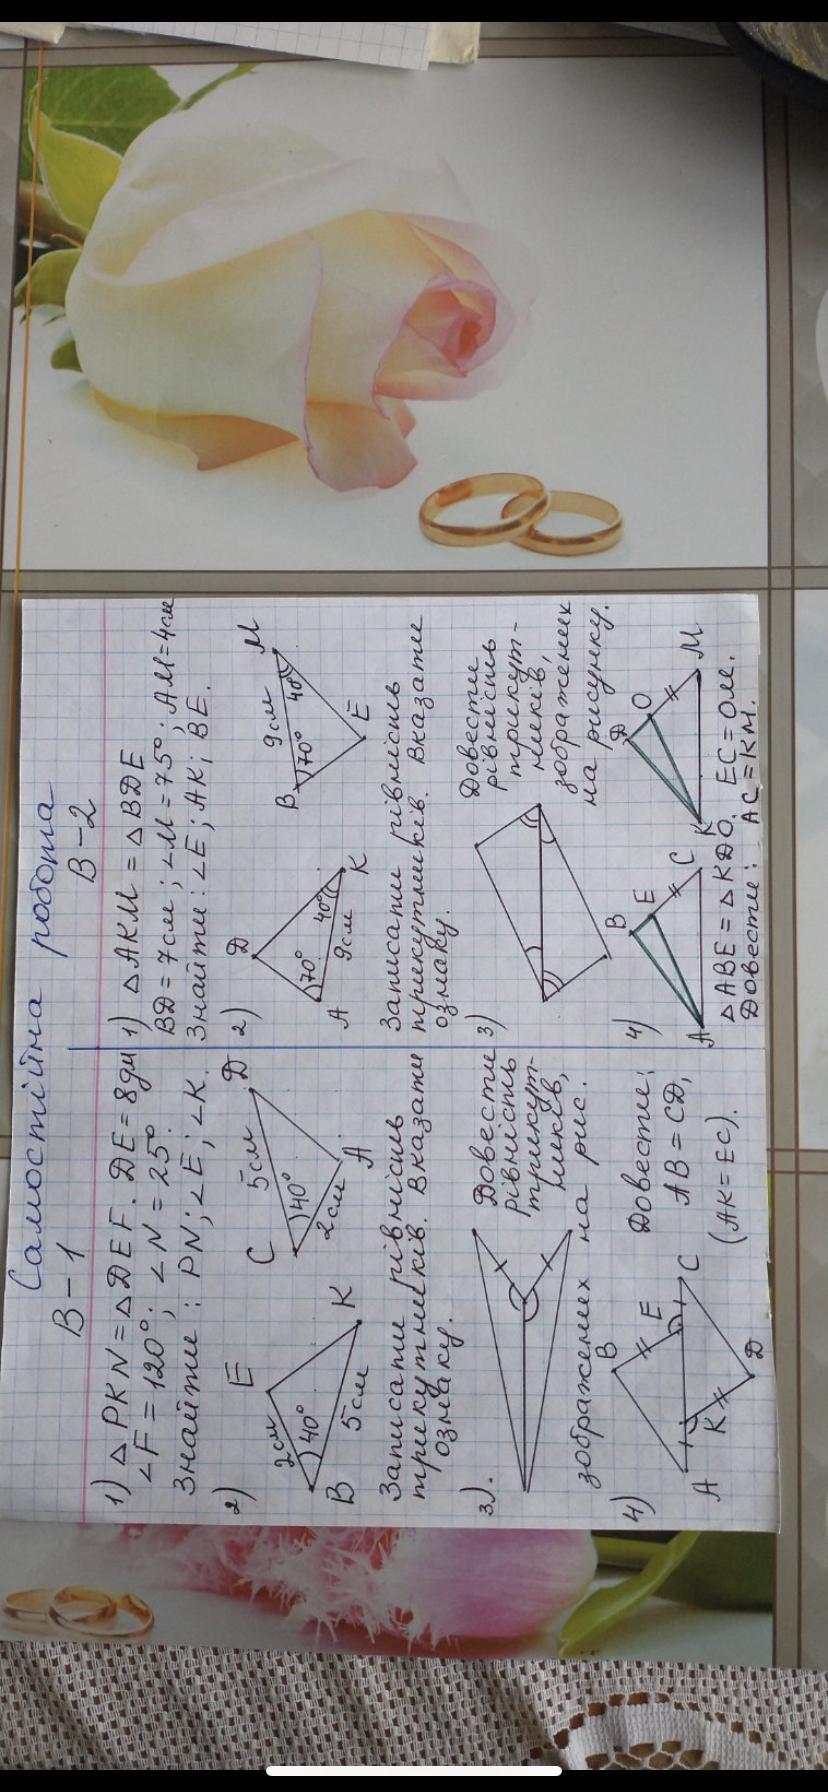 Самостійна робота
В-1
1) △PKN = △DEF. DE = 8дм
∠F = 120°; ∠N = 25°.
Знайти: PN; ∠E; ∠K.
2)
E
2см
40°
B
5см
K
C
5см
D
40°
2см
A
Записати рівність
трикутників. Вказати
ознаку.
3).
Довести
рівність
трикут-
ників,
зображених на рис.
4)
B
E
A
K
C
D
Довести:
AB = CD,
(AK = EC).
В-2
1) △AKM = △BDE
BD = 7см; ∠M = 75°; AM = 4см
Знайти: ∠E; AK; BE.
2)
D
70°
40°
A
9см
K
B
9см
M
70°
40°
E
Записати рівність
трикутників. Вказати
ознаку.
3)
Довести
рівність
трикут-
ників,
зображених
на рисунку.
4)
B
E
A
C
D
O
K
M
△ABE = △KDO, EC = OM.
Довести: AC = KM.